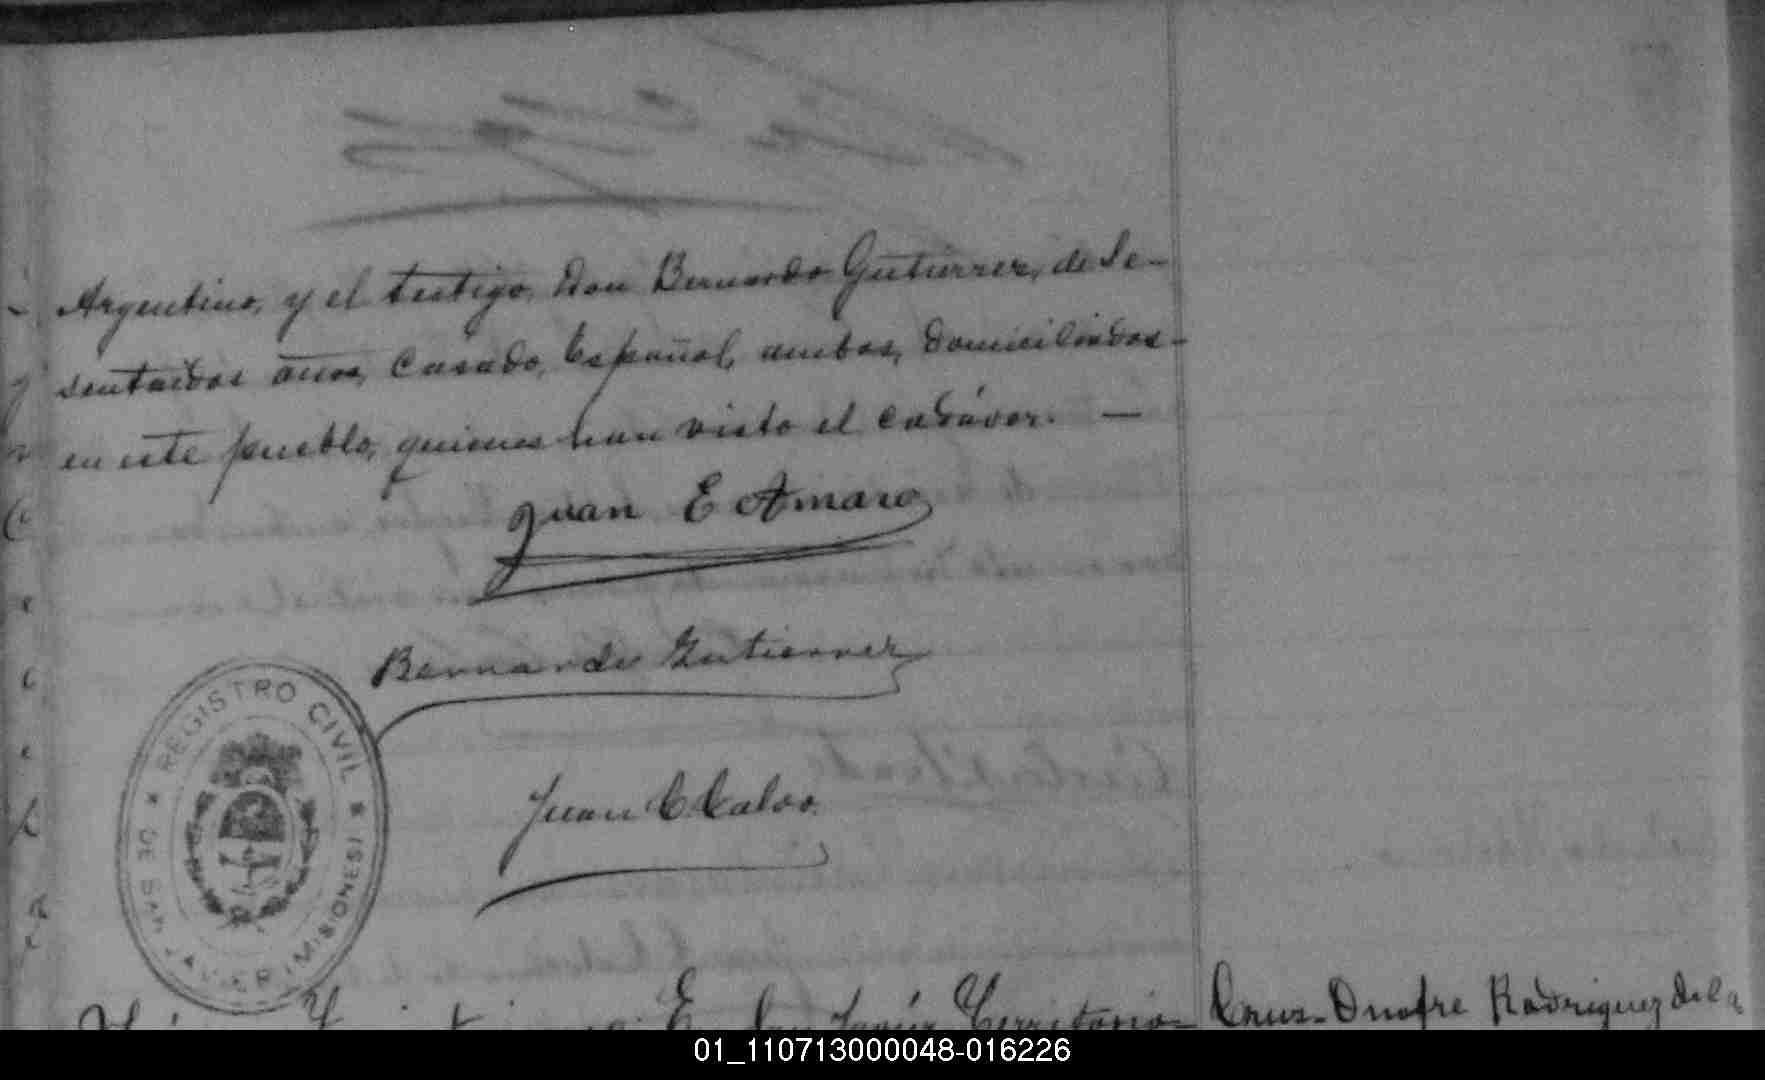 Argentino, y el testigo, Don Bernardo Gutierrez, de Se-
sentaidos años, Casado, Español, ambos, domiciliados-
en este pueblo, quienes han visto el cadáver. —
Juan E Amaro
Bernardo Gutierrez
REGISTRO CIVIL
DE SAN JAVIER (MISIONES)
Juan C. Calvo
San Javier, Territorio-
Cruz-Onofre Rodriguez de la
01_110713000048-016226